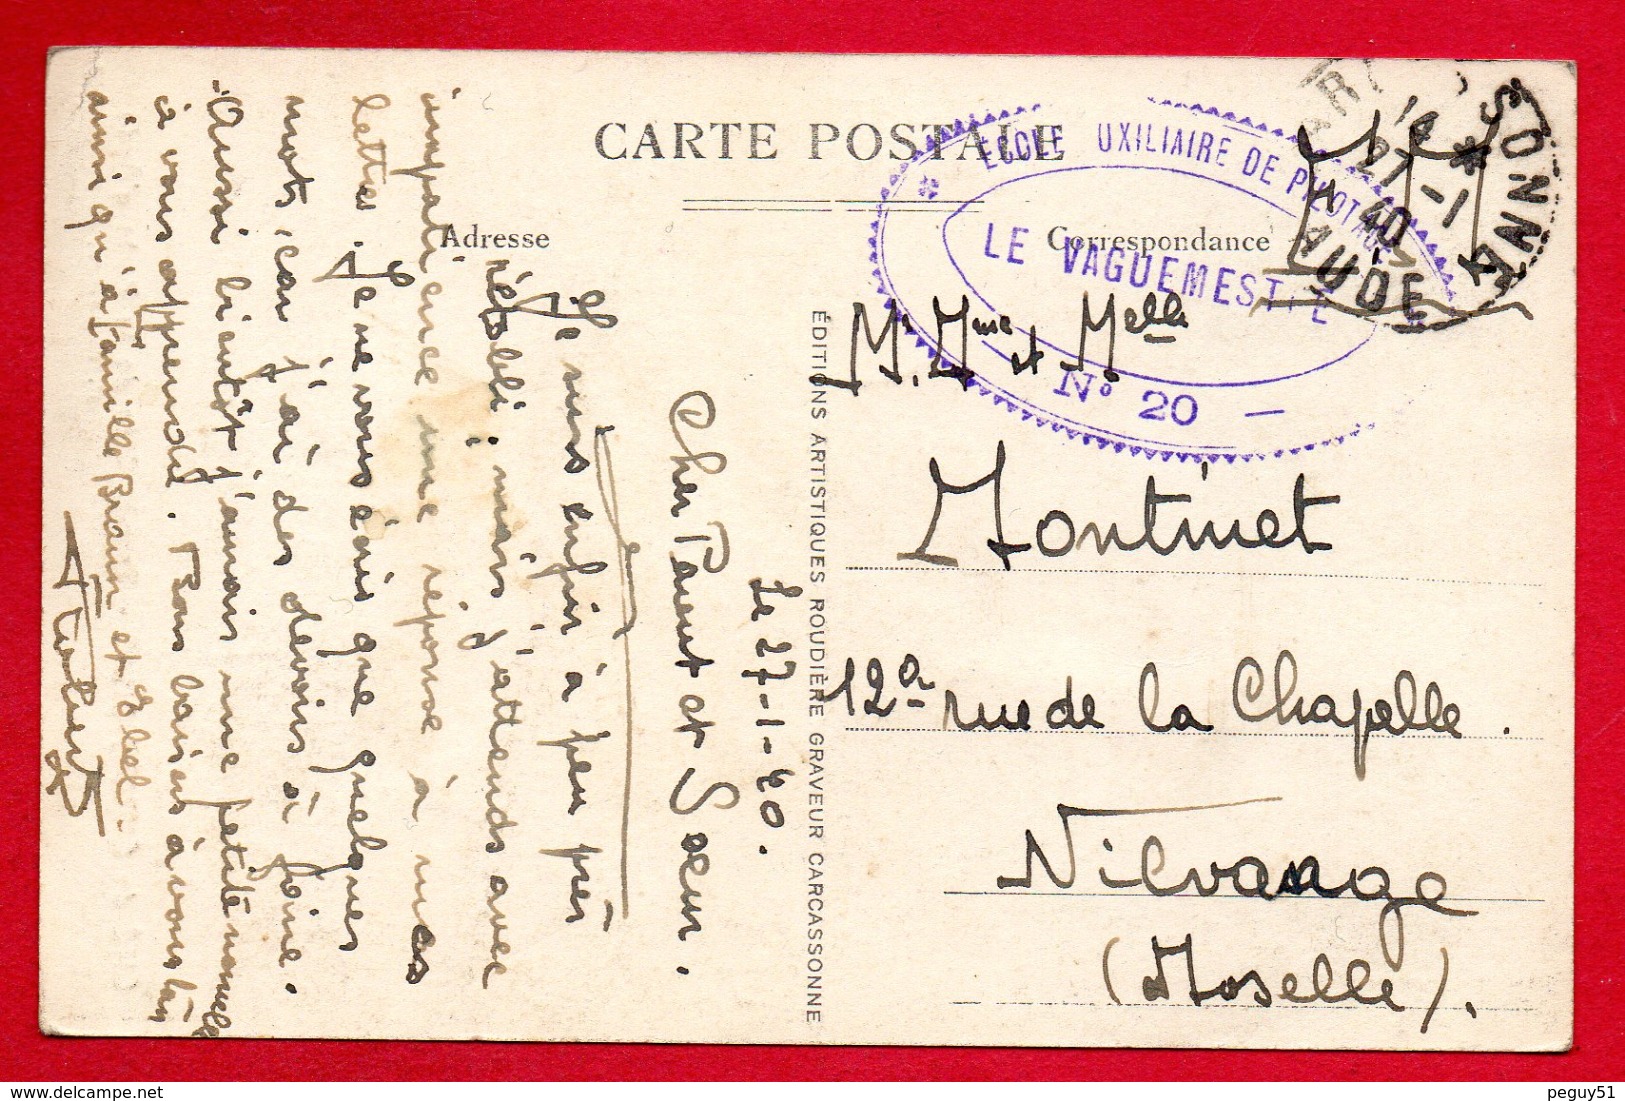 CARTE POSTALE
Adresse
Correspondance
ECOLE UXILIAIRE DE PILOTAGE
LE VAGUEMESTRE
N° 20 -
CARCASSONNE
27-1
40
AUDE
F.M
ÉDITIONS ARTISTIQUES ROUDIÈRE GRAVEUR CARCASSONNE
Mr. Mme et Melle
Montinet
12a rue de la Chapelle.
Nilvange
(Moselle).
Le 27-1-40.
Cher Parent et Soeur.
Je suis enfin à peu près
rétabli, mais j'attends avec
impatience une réponse à mes
lettres. Je ne vous écris que quelques
mots, car j'ai des devoirs à faire.
Aussi bientôt j'aurais une petite nouvelle
à vous apprendre. Bons baisers à vous tous
ainsi qu'à famille Braun et
peguy51